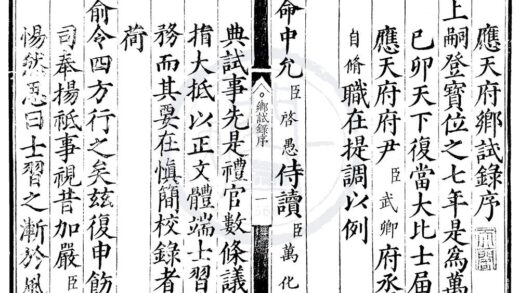 應天府鄉試錄序
上嗣登寶位之七年是爲萬
已卯天下復當大比士届
應天府府尹臣武卿府丞
自脩職在提調以例
命中允臣啓愚侍讀臣萬化
鄉試錄序 一
典試事先是禮官數條議
指大抵以正文體端士習
務而其要在慎簡校錄者
荷
俞令四方行之矣茲復申飭
司奉揚祗事視昔加嚴臣
惕然思曰士習之漸於